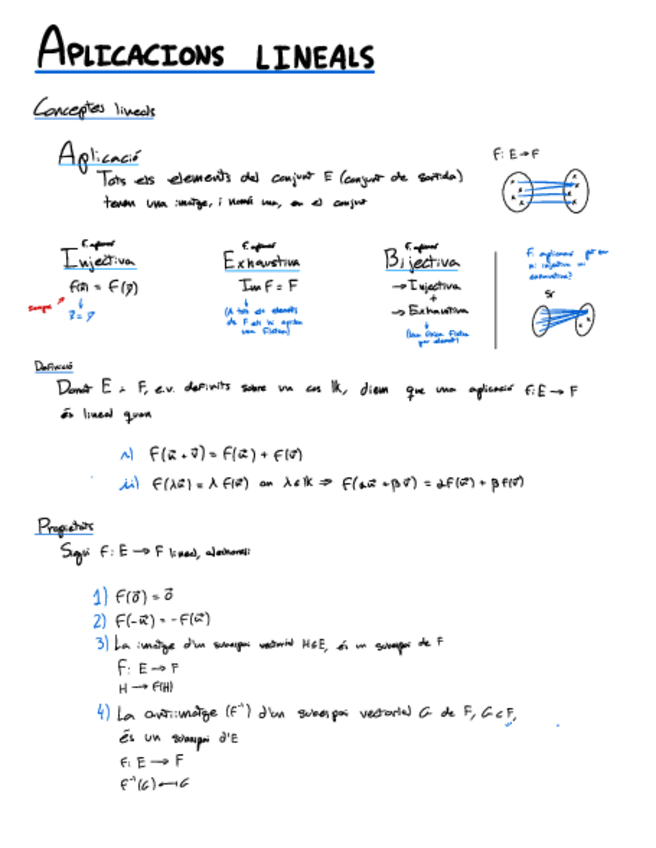 APLICACIONS LINEALS
Conceptes lineals
Aplicació
Tots els elements del conjunt E (conjunt de sortida)
tenen una imatge, i només una, en el conjunt
f: E → F
F. aplicació
Injectiva
f(x⃗) = f(y⃗)
sempre
x⃗ = y⃗
F. aplicació
Exhaustiva
Im F = F
(A tots els elements
de F els hi
una
F. aplicació
Bijectiva
→ Injectiva
+
→ Exhaustiva
(Una única
per element)
F. aplicació pot ser
ni injectiva ni
exhaustiva?
Sí
Definició
Donat E i F, e.v. definits sobre un cos K, diem que una aplicació f: E → F
és lineal quan
i) F(u⃗ + v⃗) = F(u⃗) + F(v⃗)
ii) F(λu⃗) = λ F(u⃗) on λ∈K ⇒ F(αu⃗ + βv⃗) = αF(u⃗) + βF(v⃗)
Propietats
Sigui f: E → F lineal, aleshores:
1) F(0⃗) = 0⃗
2) F(-u⃗) = -F(u⃗)
3) La imatge d'un subespai vectorial H⊂E, és un subespai de F
F: E → F
H → F(H)
4) La antiimatge (F⁻¹) d'un subespai vectorial G de F, G⊂F,
és un subespai d'E
F: E → F
F⁻¹(G) ← G